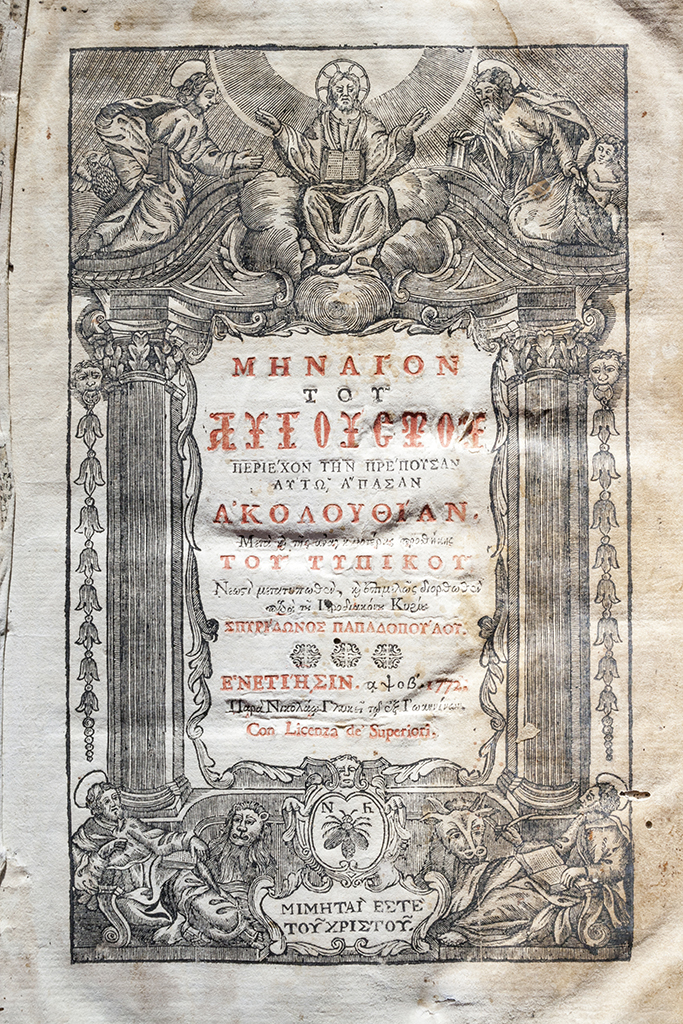 ΜΗΝΑΓΟΝ
ΤΟΥ͂
ΑΥΓΟΥΣΤΟΥ
ΠΕΡΙΕ΄ΧΟΝ ΤΗΝ ΠΡΕ΄ΠΟΥΣΑΝ
ΑΥΤΩ͂, Α῞ΠΑΣΑΝ
Α᾿ΚΟΛΟΥΘΙ΄ΑΝ.
Μετὰ καὶ τῆς προθήκης
ΤΟΥ͂ ΤΥΠΙΚΟΥ͂
Νεωστὶ μετατυπωθὲν, καὶ ἐπιμελῶς διορθωθὲν
παρὰ τοῦ Ἱεροδιακόνου Κυρίου
ΣΠΥΡΙ΄ΔΩΝΟΣ ΠΑΠΑΔΟΠΟΥ΄ΛΟΥ.
Ε᾿ΝΕΤΙ΄ΗΣΙΝ. αψοβ. 1772.
Παρὰ Νικολάῳ Γλυκεῖ τῷ ἐξ Ἰωαννίνων.
Con Licenza de' Superiori.
Ν Γ
ΜΙΜΗΤΑΙ΄ ΕΣΤΕ
ΤΟΥ͂ ΧΡΙΣΤΟΥ͂.